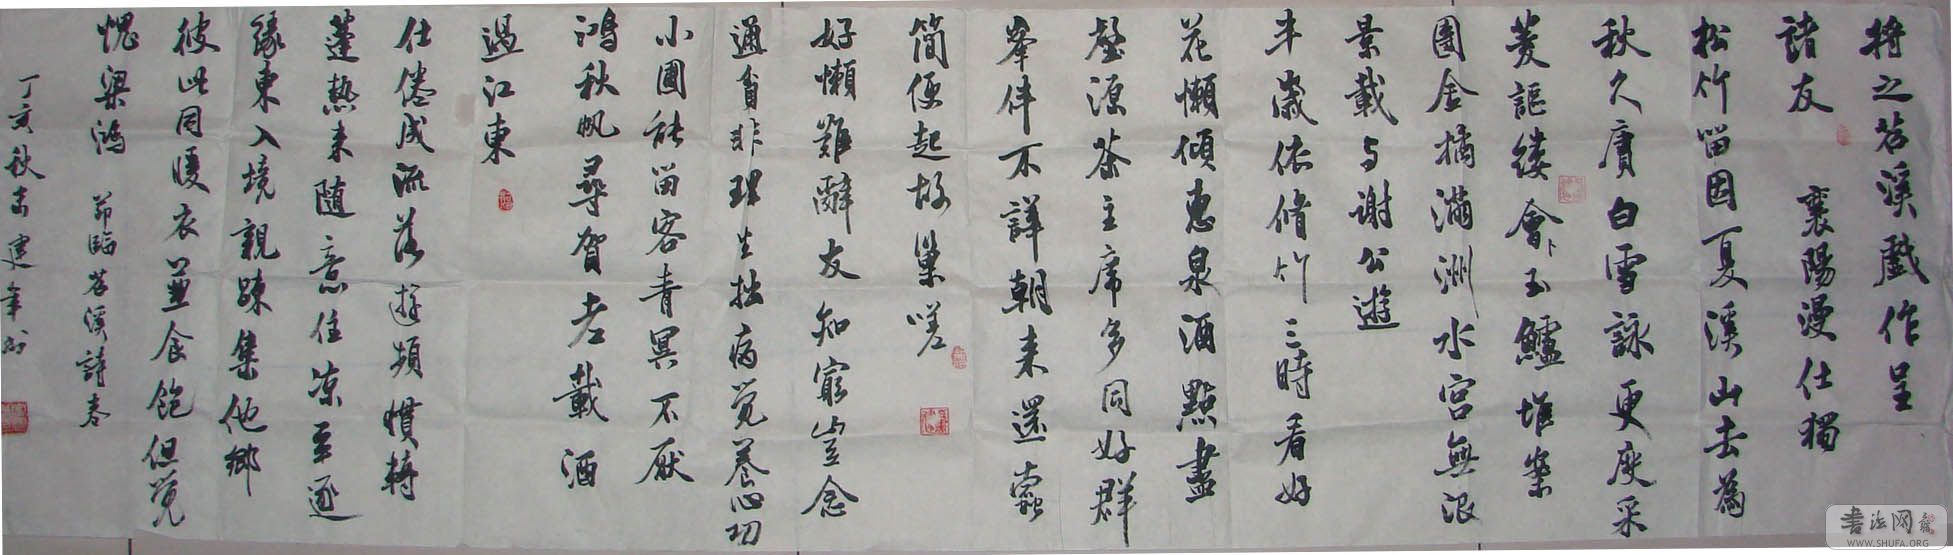 將之苕溪戲作呈
諸友 襄陽漫仕獨
松竹留因夏溪山去為
秋久賡白雪詠更度采
菱謳縷會卜玉鱸堆案
團金橘滿洲水宮無限
景載与謝公遊
半歲依脩竹三時看好
花懶傾惠泉酒點盡
壑源茶主席多同好群
峯伴不詳朝来還蠹
簡便起故巢嗟
好懶難辭友知窮豈念
通貧非理生拙病覺養心功
小圃能留客青冥不厭
鴻秋帆尋賀老載酒
過江東
仕倦成流落遊頻慣轉
蓬熱来隨意住凉至逐
緣東入境親踈集他鄉
彼此同暖衣兼食飽但覺
愧梁鴻 節臨苕溪詩卷
丁亥秋 建
书法网
WWW.SHUFA.ORG